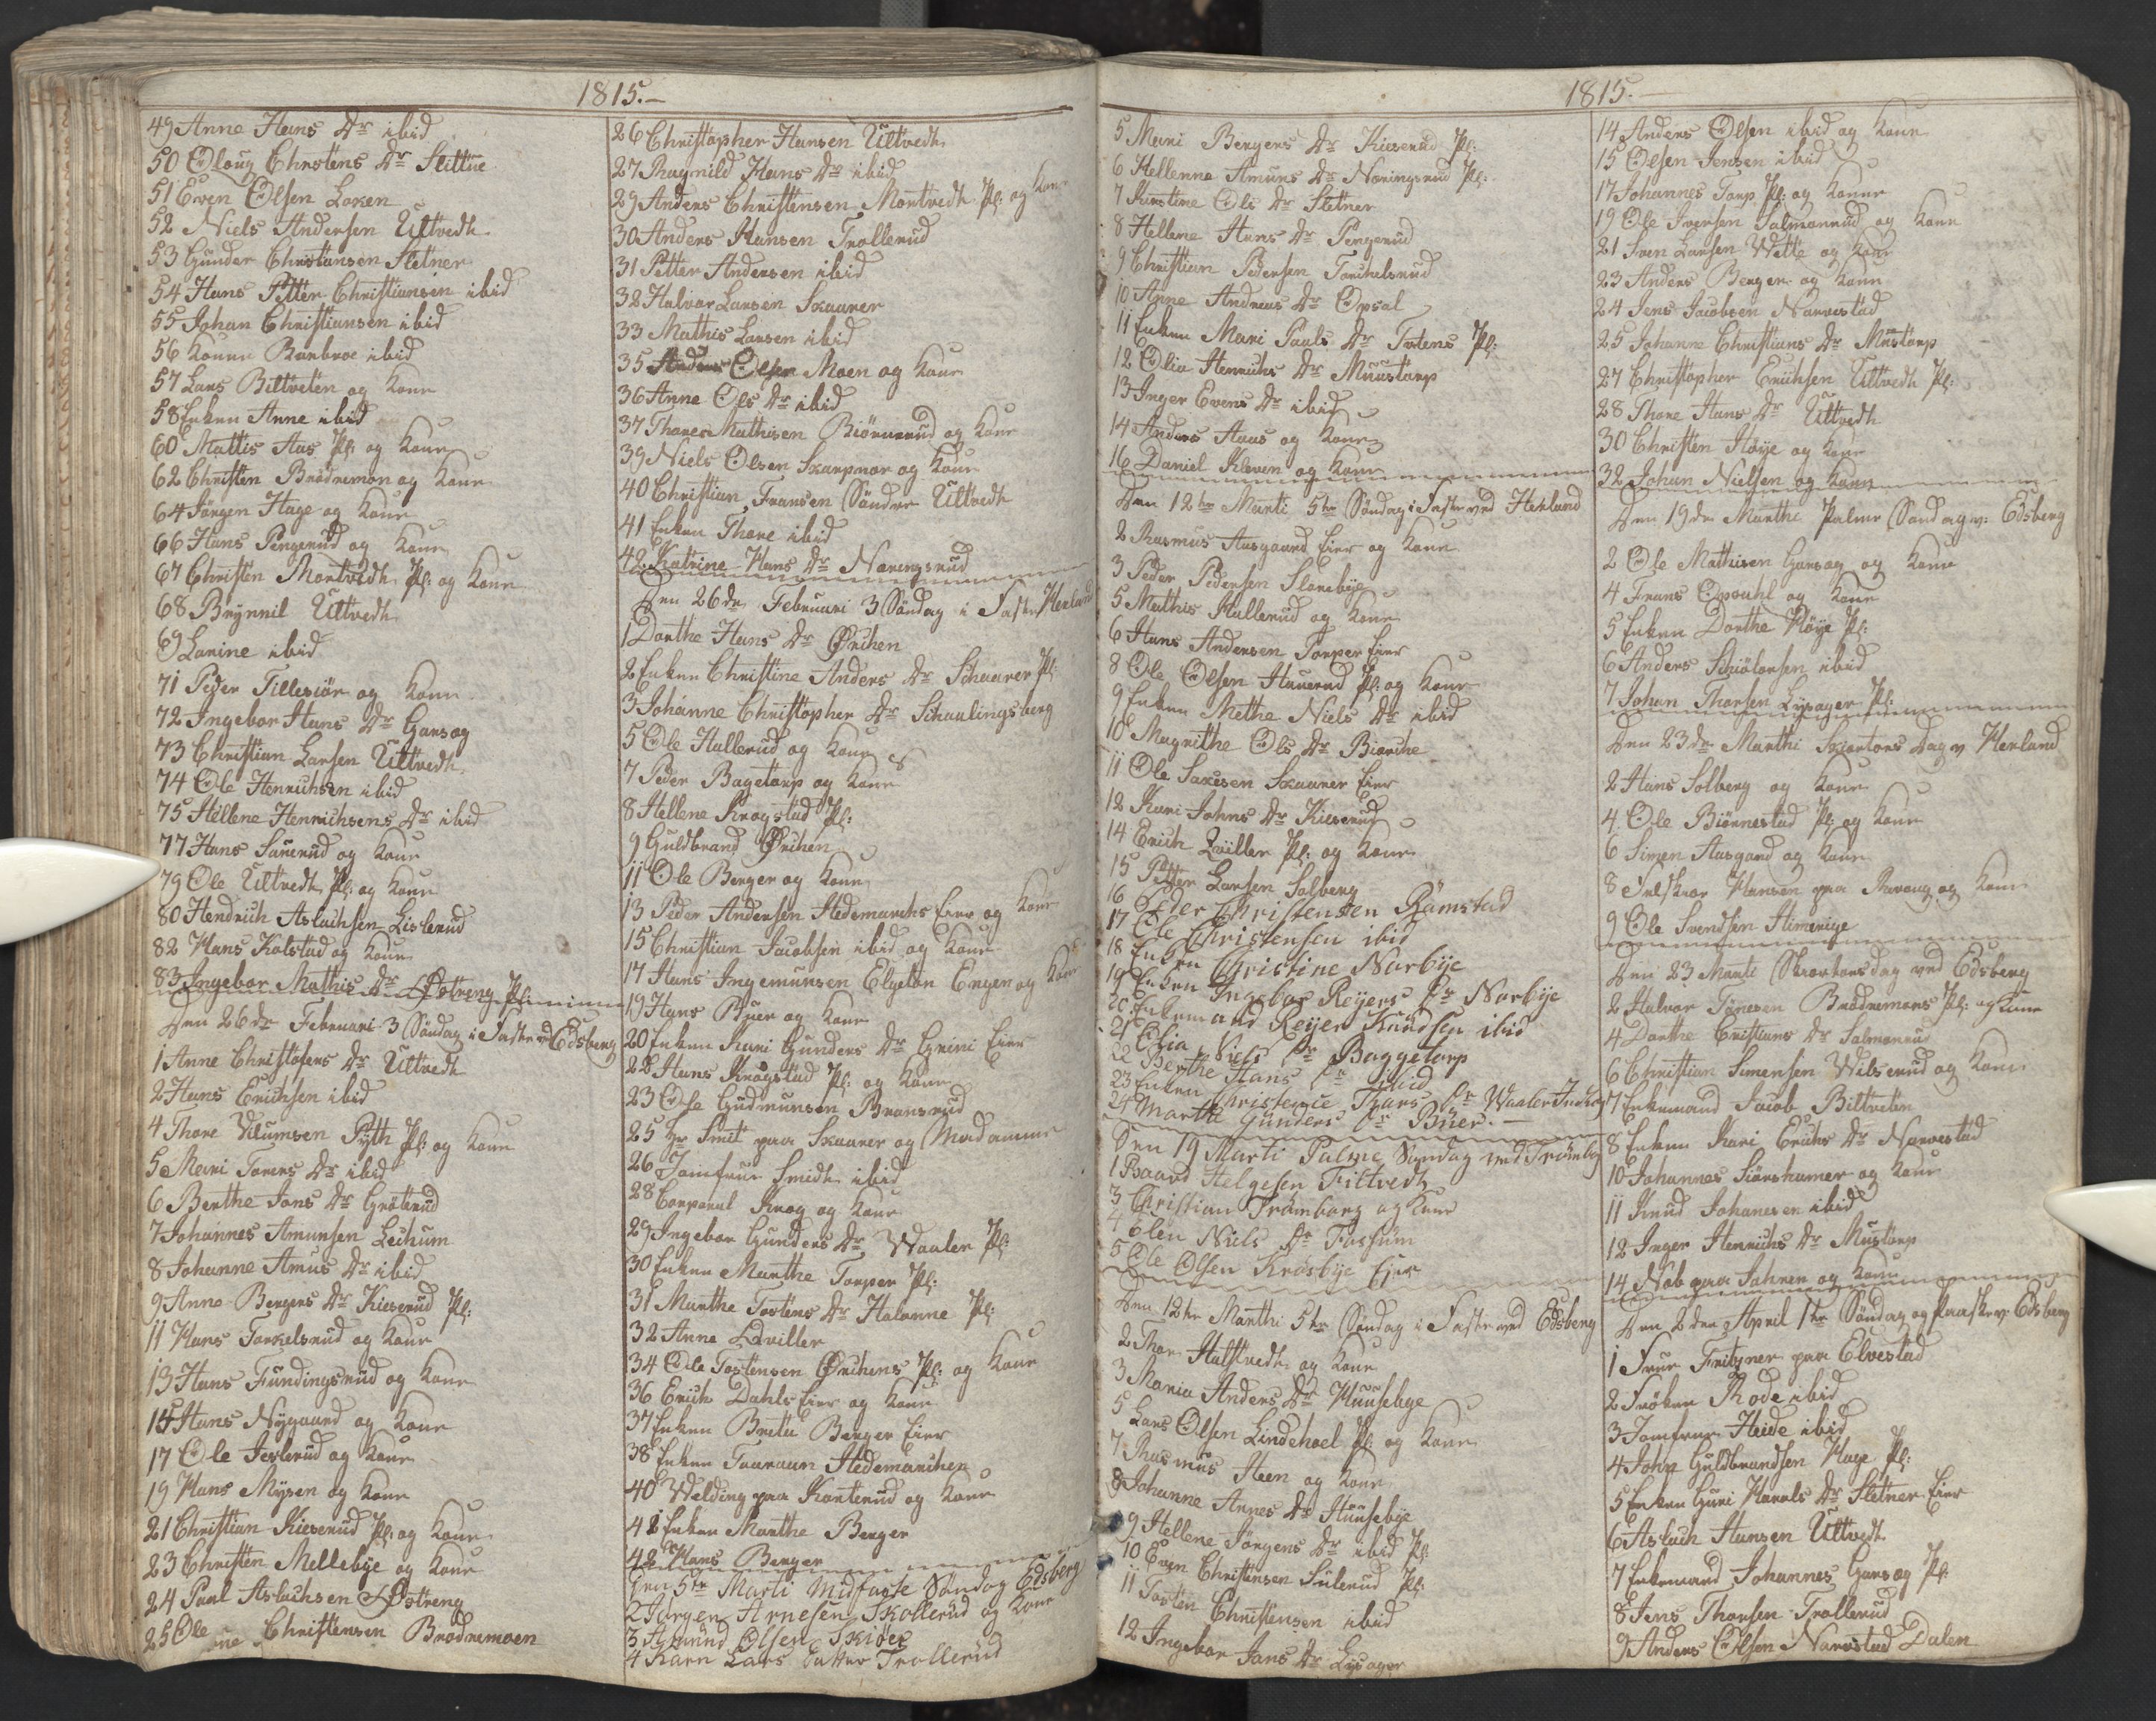 1815.-
49 Anne Hans Dr ibid
50 Oloug Christens Dr Slittue
51 Even Olsen Loken
52 Niels Andersen Ultvedt
53 Gunder Christansen Sletner
54 Hans Petter Christiansen ibid
55 Johan Christiansen ibid
56 Konen Barbroe ibid
57 Lars Biltveten og Kone
58 Enken Anne ibid
60 Mattis Aas Pl: og Kone
62 Christen Brødremon og Kone
64 Jørgen Hage og Kone
66 Hans Pengerud og Kone
67 Christen Mortvedt Pl: og Kone
68 Brynnil Ultvedt
69 Larine ibid
71 Peder Tillesiør og Kone
72 Ingebor Hans Dr Garsog
73 Christian Larsen Ultvedt
74 Ole Henrichsen ibid
75 Hellene Henrichsens Dr ibid
77 Hans Sauerud og Kone
79 Ole Ultvedt Pl: og Kone
80 Hendrich Aslachsen Lislerud
82 Hans Kolstad og Kone
83 Ingebor Mathis Dr Østreng Pl:
Den 26de Februari 3 Søndag i Faste ved Edsberg
1 Anne Christofers Dr Ultvedt
2 Hans Erichsen ibid
4 Thore Pyth Pl: og Kone
5 Mari Torers Dr ibid
6 Berthe Jons Dr Grøterud
7 Johannes Amunsen Lechum
8 Johanne Amus Dr ibid
9 Anne Bergers Dr Kieserud Pl:
11 Hans Torkelsrud og Kone
13 Hans Fundingsrud og Kone
15 Hans Nygaard og Kone
17 Ole Jerlerud og Kone
19 Hans Mysen og Kone
21 Christian Kieserud Pl: og Kone
23 Christen Mellebye og Kone
24 Paul Aslachsen Østreng
25 Ole Christensen Brødremoen
26 Christopher Hansen Ultvedt
27 Ragnild Hans Dr ibid
29 Anders Christensen Mortvedt Pl: og Kone
30 Anders Hansen Trollerud
31 Petter Andersen ibid
32 Halvor Larsen Skaarer
33 Mathis Larsen ibid
35 Anders Olsen Moen og Kone
36 Anne Ols Dr ibid
37 Thores Mathisen Biørnerud og Kone
39 Niels Olsen Skarpnor og Kone
40 Christian Fransen Søndre Ultvedt
41 Enken Thore ibid
42 Katrine Hans Dr Næringsrud
Den 26de Februari 3 Søndag i Faste Herland
1 Dorthe Hans Dr Ørichen
2 Enken Christine Anders Dr Schaarer Pl:
3 Johanne Christopher Dr Schaulingsberg
5 Ole Hallerud og Kone
7 Peder Bagetorp og Kone
8 Hellene Krogstad Pl:
9 Guldbrand Ørichen
11 Ole Berger og Kone
13 Peder Andersen Hedemarchs Eier og Kone
15 Christian Jacobsen ibid og Kone
17 Hans Ingemunsen Elgeton Enger og Kone
19 Hans Buer og Kone
20 Enken Kari Gunders Dr Grini Eier
22 Hans Krogstad Pl: og Kone
23 Ole Gudmunsen Bransrud
25 Hr Smit paa Skaarer og Madamme
26 Jomfrue Smidt ibid
28 Corporal Krog og Kone
29 Ingebor Gunders Dr Waaler Pl:
30 Enken Marthe Torper Pl:
31 Marthe Tostens Dr Halonne Pl:
32 Anne Qviller
34 Ole Tostensen Ørichens Pl: og Kone
36 Erich Dahls Eier og Kone
37 Enken Brete Berger Eier
38 Enken Taaraan Hedemarchen
40 Welding paa Korterud og Kone
41 Enken Marthe Berger
42 Hans Berger
Den 5te Marti Midfaste Søndag Edsberg
2 Jørgen Arnesen Skollerud og Kone
3 Amund Olsen Skiøer
4 Karn Lars Datter Trollerud
1815.-
5 Mari Bergers Dr Kieserud Pl:
6 Hellenne Amuns Dr Næringsrud Pl:
7 Kirstine Ols Dr Sletner
8 Hellene Hans Dr Pengerud
9 Christian Pedersen Torchelsrud
10 Anne Andreas Dr Opsal
11 Enken Mari Pauls Dr Totens Pl:
12 Olia Henrichs Dr Muustorp
13 Inger Evens Dr ibid
14 Anders Aaas og Kone
16 Daniel Kleven og Kone
Den 12te Marti 5te Søndag i Faste ved Herland
2 Rasmus Aasgaard Eier og Kone
3 Peder Pedersen Slorebye
5 Mathis Hallerud og Kone
6 Hans Andersen Torper Eier
8 Ole Olsen Hauerud Pl: og Kone
9 Enken Methe Niels Dr ibid
10 Magrithe Ols Dr Biørche
11 Ole Saxesen Skaarer Eier
12 Kari Johns Dr Kieserud
14 Erich Qviller Pl: og Kone
15 Petter Larsen Solberg
16 Peder Christensen Ramstad
17 Ole Christensen ibid
18 Enken Christine Narbye
19 Enken Ingebor Reyers Dr Narbye
20 Enkemand Reyer Knudsen ibid
21 Olia Niels Dr Baggetorp
22 Berthe Hans Dr ibid
23 Enken Christence Thars Dr Waaler Inderst
24 Marthe Gunders Dr Buer.-
Den 19 Marti Palme Søndag ved Trømbg
1 Baard Helgesen Tiltvedt
3 Christian Trømborg og Kone
4 Elen Niels Dr Fossum
5 Ole Olsen Krosbye Eier
Den 12te Marthi 5te Søndag i Faste ved Edsberg
2 Thor Halstvedt og Kone
3 Maria Anders Dr Huusebye
5 Lars Olsen Lindehoel Pl: og Kone
7 Rasmus Steen og Kone
8 Johanne Arnes Dr Huusebye
9 Hellene Jørgens Dr ibid Pl:
10 Even Christensen Sulerud Pl:
11 Tosten Christensen ibid
12 Ingebor Jans Dr Lysager
14 Anders Olsen ibid og Kone
15 Olsen Jensen ibid
17 Johannes Torp Pl: og Konne
19 Ole Iversen Salmonrud og Kone
21 Iven Larsen Wette og Kone
23 Anders Berger og Kone
24 Jens Jacobsen Narvestad
25 Johanne Christians Dr Mustorp
27 Christopher Erichsen Ultvedt Pl:
28 Thore Hans Dr Ultvedt
30 Christen Høye og Kone
32 Johan Nielsen og Kone
Den 19de Marthi Palme Søndag v: Edsberg
2 Ole Mathisen Garsog og Kone
4 Frans Opsahl og Kone
5 Enken Dorthe Høye Pl:
6 Anders Schiølorsen ibid
7 Johan Thorsen Lysager Pl:
Den 23de Marthi Skiærtors Dag v Herland
2 Hans Solberg og Kone
4 Ole Biørnestad Pl: og Kone
6 Simen Aasgard og Kone
8 Hansen paa og Kone
9 Ole Svendsen Himerige
Den 23 Marti Skiærtorsdag ved Edsberg
2 Halvor Tønesen Brødremons Pl: og Kone
4 Dorthe Cristians Dr Salmonrud
6 Christian Simensen Wilserud og Kone
7 Enkemand Jacob Biltveten
8 Enken Kari Erichs Dr Narvestad
10 Johannes Siørshamer og Kone
11 Knud Johanesen ibid
12 Inger Henrichs Dr Mustorp
14 Nob paa Sahren og Kone
Den 2den April 1te Søndag og Paaske v: Edsberg
1 Frue Fritzner paa Elvestad
2 Frøken Rode ibid
3 Jomfrue Heide ibid
4 John Guldbrandsen Hage Pl:
5 Enken Guri Harals Dr Sletner Eier
6 Aslach Hansen Ultvedt
7 Enkemand Johannes Garsog Pl:
8 Jens Thorsen Trollerud
9 Anders Olsen Narvestad Dalen